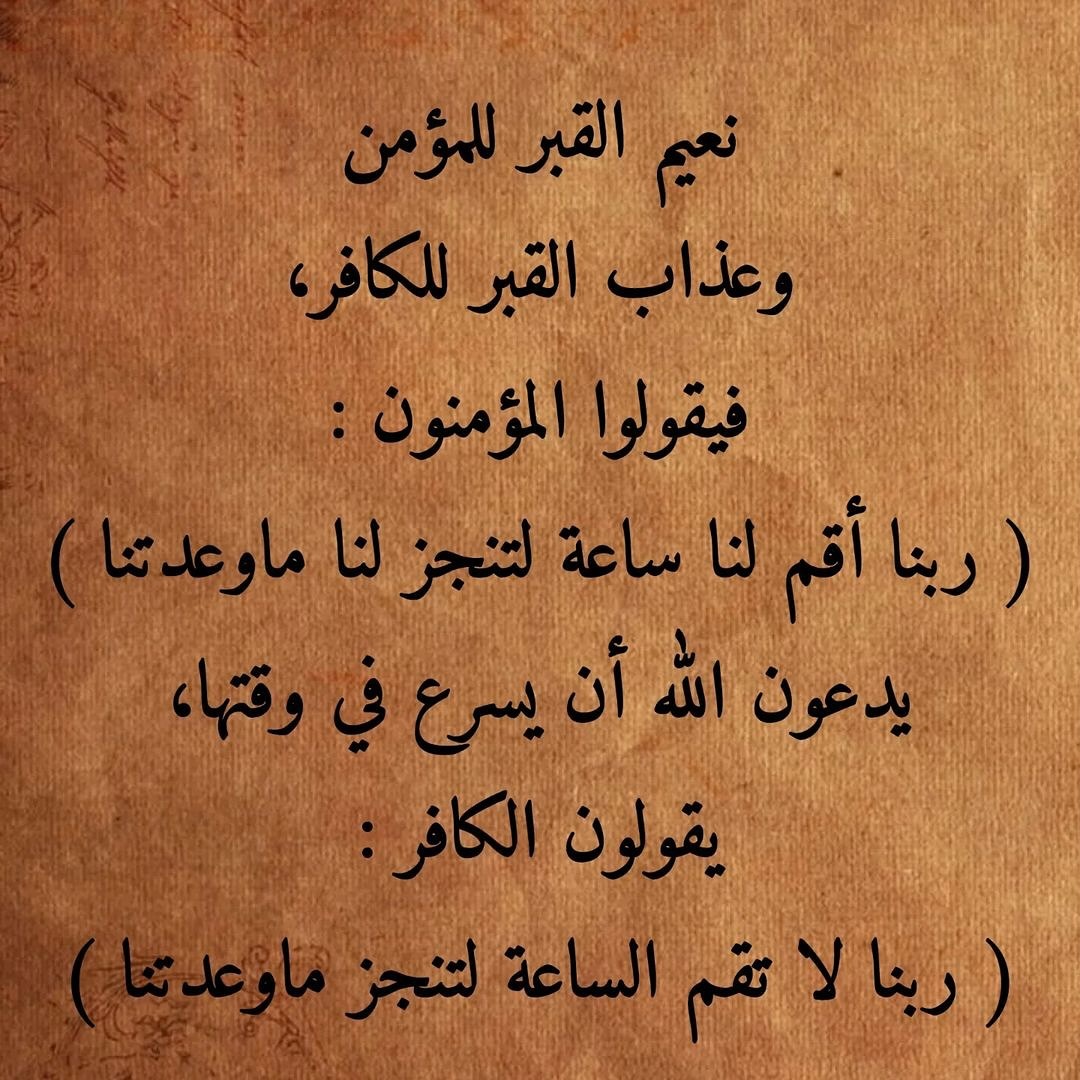 نعيم القبر للمؤمن
وعذاب القبر للكافر،
فيقولوا المؤمنون :
( ربنا أقم لنا ساعة لتنجز لنا ماوعدتنا )
يدعون الله أن يسرع في وقتها،
يقولون الكافر :
( ربنا لا تقم الساعة لتنجز ماوعدتنا )